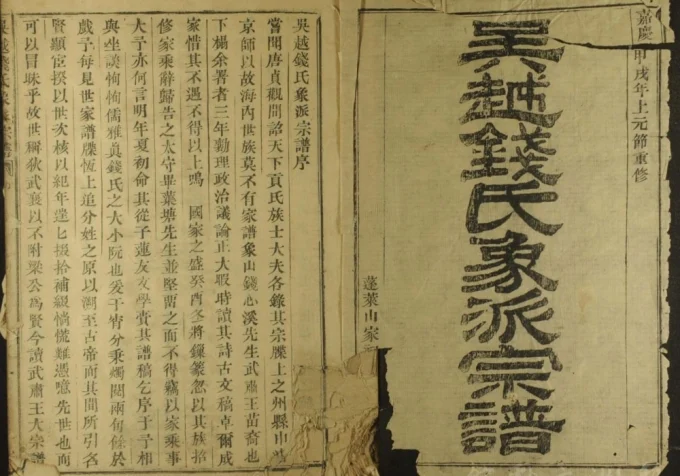 嘉慶甲戌年上元節重修
吳越錢氏象派宗譜
蓬萊山家
吳越錢氏象派宗譜序
嘗聞唐貞觀間詔天下貢氏族士大夫各錄其宗牒上之州縣申
京師以故海內世族莫不有家譜象山錢心溪先生武肅王苗裔也
下榻余署者三年勷理政治議論正大暇時讀其詩古文稿卓爾成
家惜其不遇不得以上鳴國家之盛癸酉冬將鐫篆忽以其族招
修家乘辭歸告之太守畢葉塘先生並堅留之而不得竊以家乘事
大予亦何言明年夏初命其從子蓮友文學賫其譜稿乞序于予相
與坐談恂恂儒雅真錢氏之大小阮也爰于宵分秉燭閱兩旬餘於
戲予每見世家譜牒恆上追分姓之原以溯至古帝而其間所引名
賢顯宦揆以世次核以紀年遂匕掇拾補綴惝慌難憑噫先世也而
可以冒昧乎故世稱狄武襄以不附梁公為賢今讀武肅王大宗譜
吳越錢氏象派宗譜